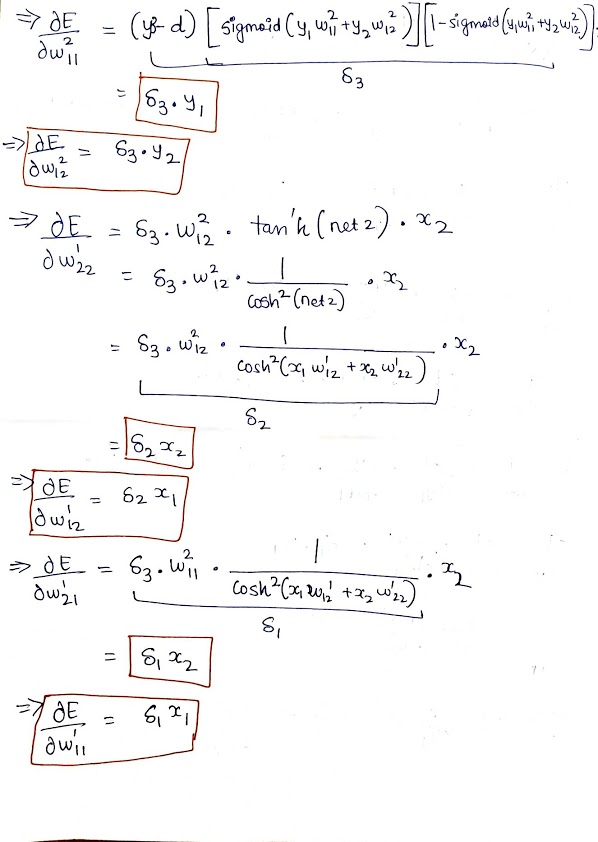 ⇒ ∂E/∂w²₁₁ = (y₃ - d) [sigmoid(y₁w²₁₁ + y₂w²₁₂)] [1 - sigmoid(y₁w²₁₁ + y₂w²₁₂)].
δ₃
= δ₃ · y₁
⇒ ∂E/∂w²₁₂ = δ₃ · y₂
⇒ ∂E/∂w¹₂₂ = δ₃ · w²₁₂ · tan'h (net 2) · x₂
= δ₃ · w²₁₂ · 1/cosh²(net 2) · x₂
= δ₃ · w²₁₂ · 1/cosh²(x₁ w¹₁₂ + x₂ w¹₂₂) · x₂
δ₂
= δ₂ x₂
⇒ ∂E/∂w¹₁₂ = δ₂ x₁
⇒ ∂E/∂w¹₂₁ = δ₃ · w²₁₁ · 1/cosh²(x₁ w¹₁₂ + x₂ w¹₂₂) · x₂
δ₁
= δ₁ x₂
⇒ ∂E/∂w¹₁₁ = δ₁ x₁